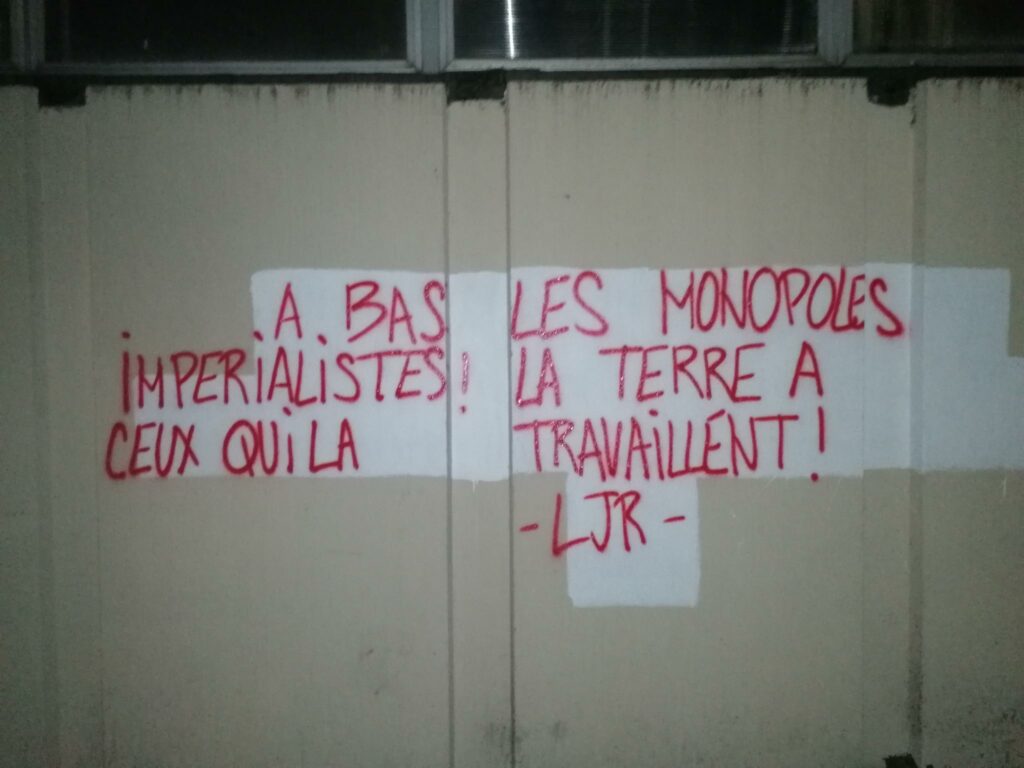 A BAS LES MONOPOLES
iMPERiALiSTES! LA TERRE A
CEUX QUi LA TRAVAiLLENT!
-LJR-